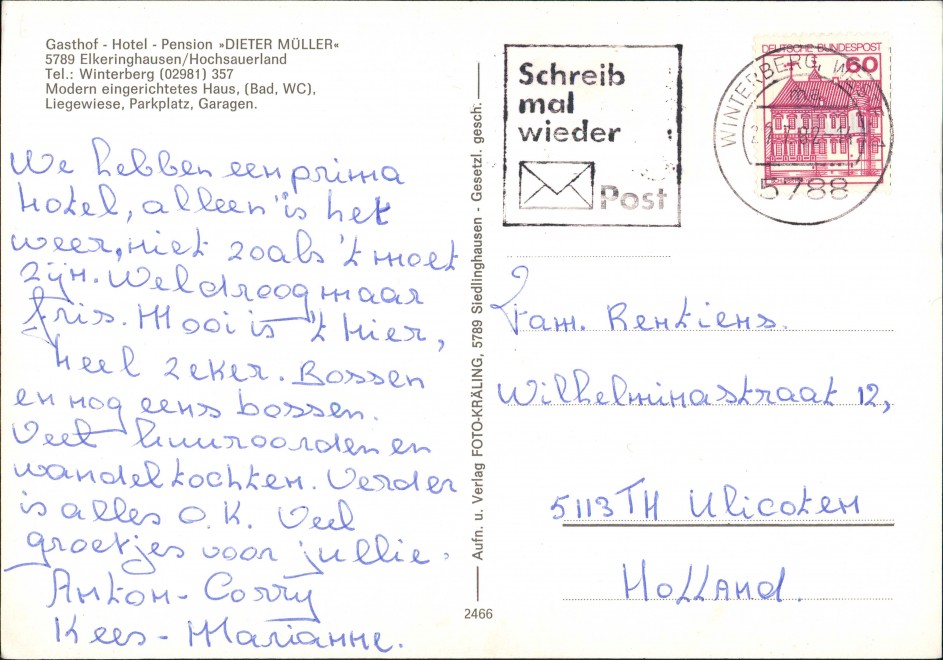 Gasthof - Hotel - Pension »DIETER MÜLLER«
5789 Elkeringhausen/Hochsauerland
Tel.: Winterberg (02981) 357
Modern eingerichtetes Haus, (Bad, WC),
Liegewiese, Parkplatz, Garagen.
We hebben een prima
hotel, alleen is het
weer, niet zoals 't moet
zijn. Wel droog maar
fris. Mooi is 't hier,
heel zeker. Bossen
en nog eens bossen.
Veel kuuroorden en
wandeltochten. Verder
is alles O.K. Veel
groetjes voor jullie.
Anton - Corry
Kees - Marianne.
Aufn. u. Verlag FOTO-KRÄLING, 5789 Siedlinghausen - Gesetzl. gesch.
2466
Schreib
mal
wieder
Post
DEUTSCHE BUNDESPOST
60
WINTERBERG, WESTF
5788
Fam. Rentiens.
Wilhelminastraat 12,
5113 TH Ulicoten
Holland.